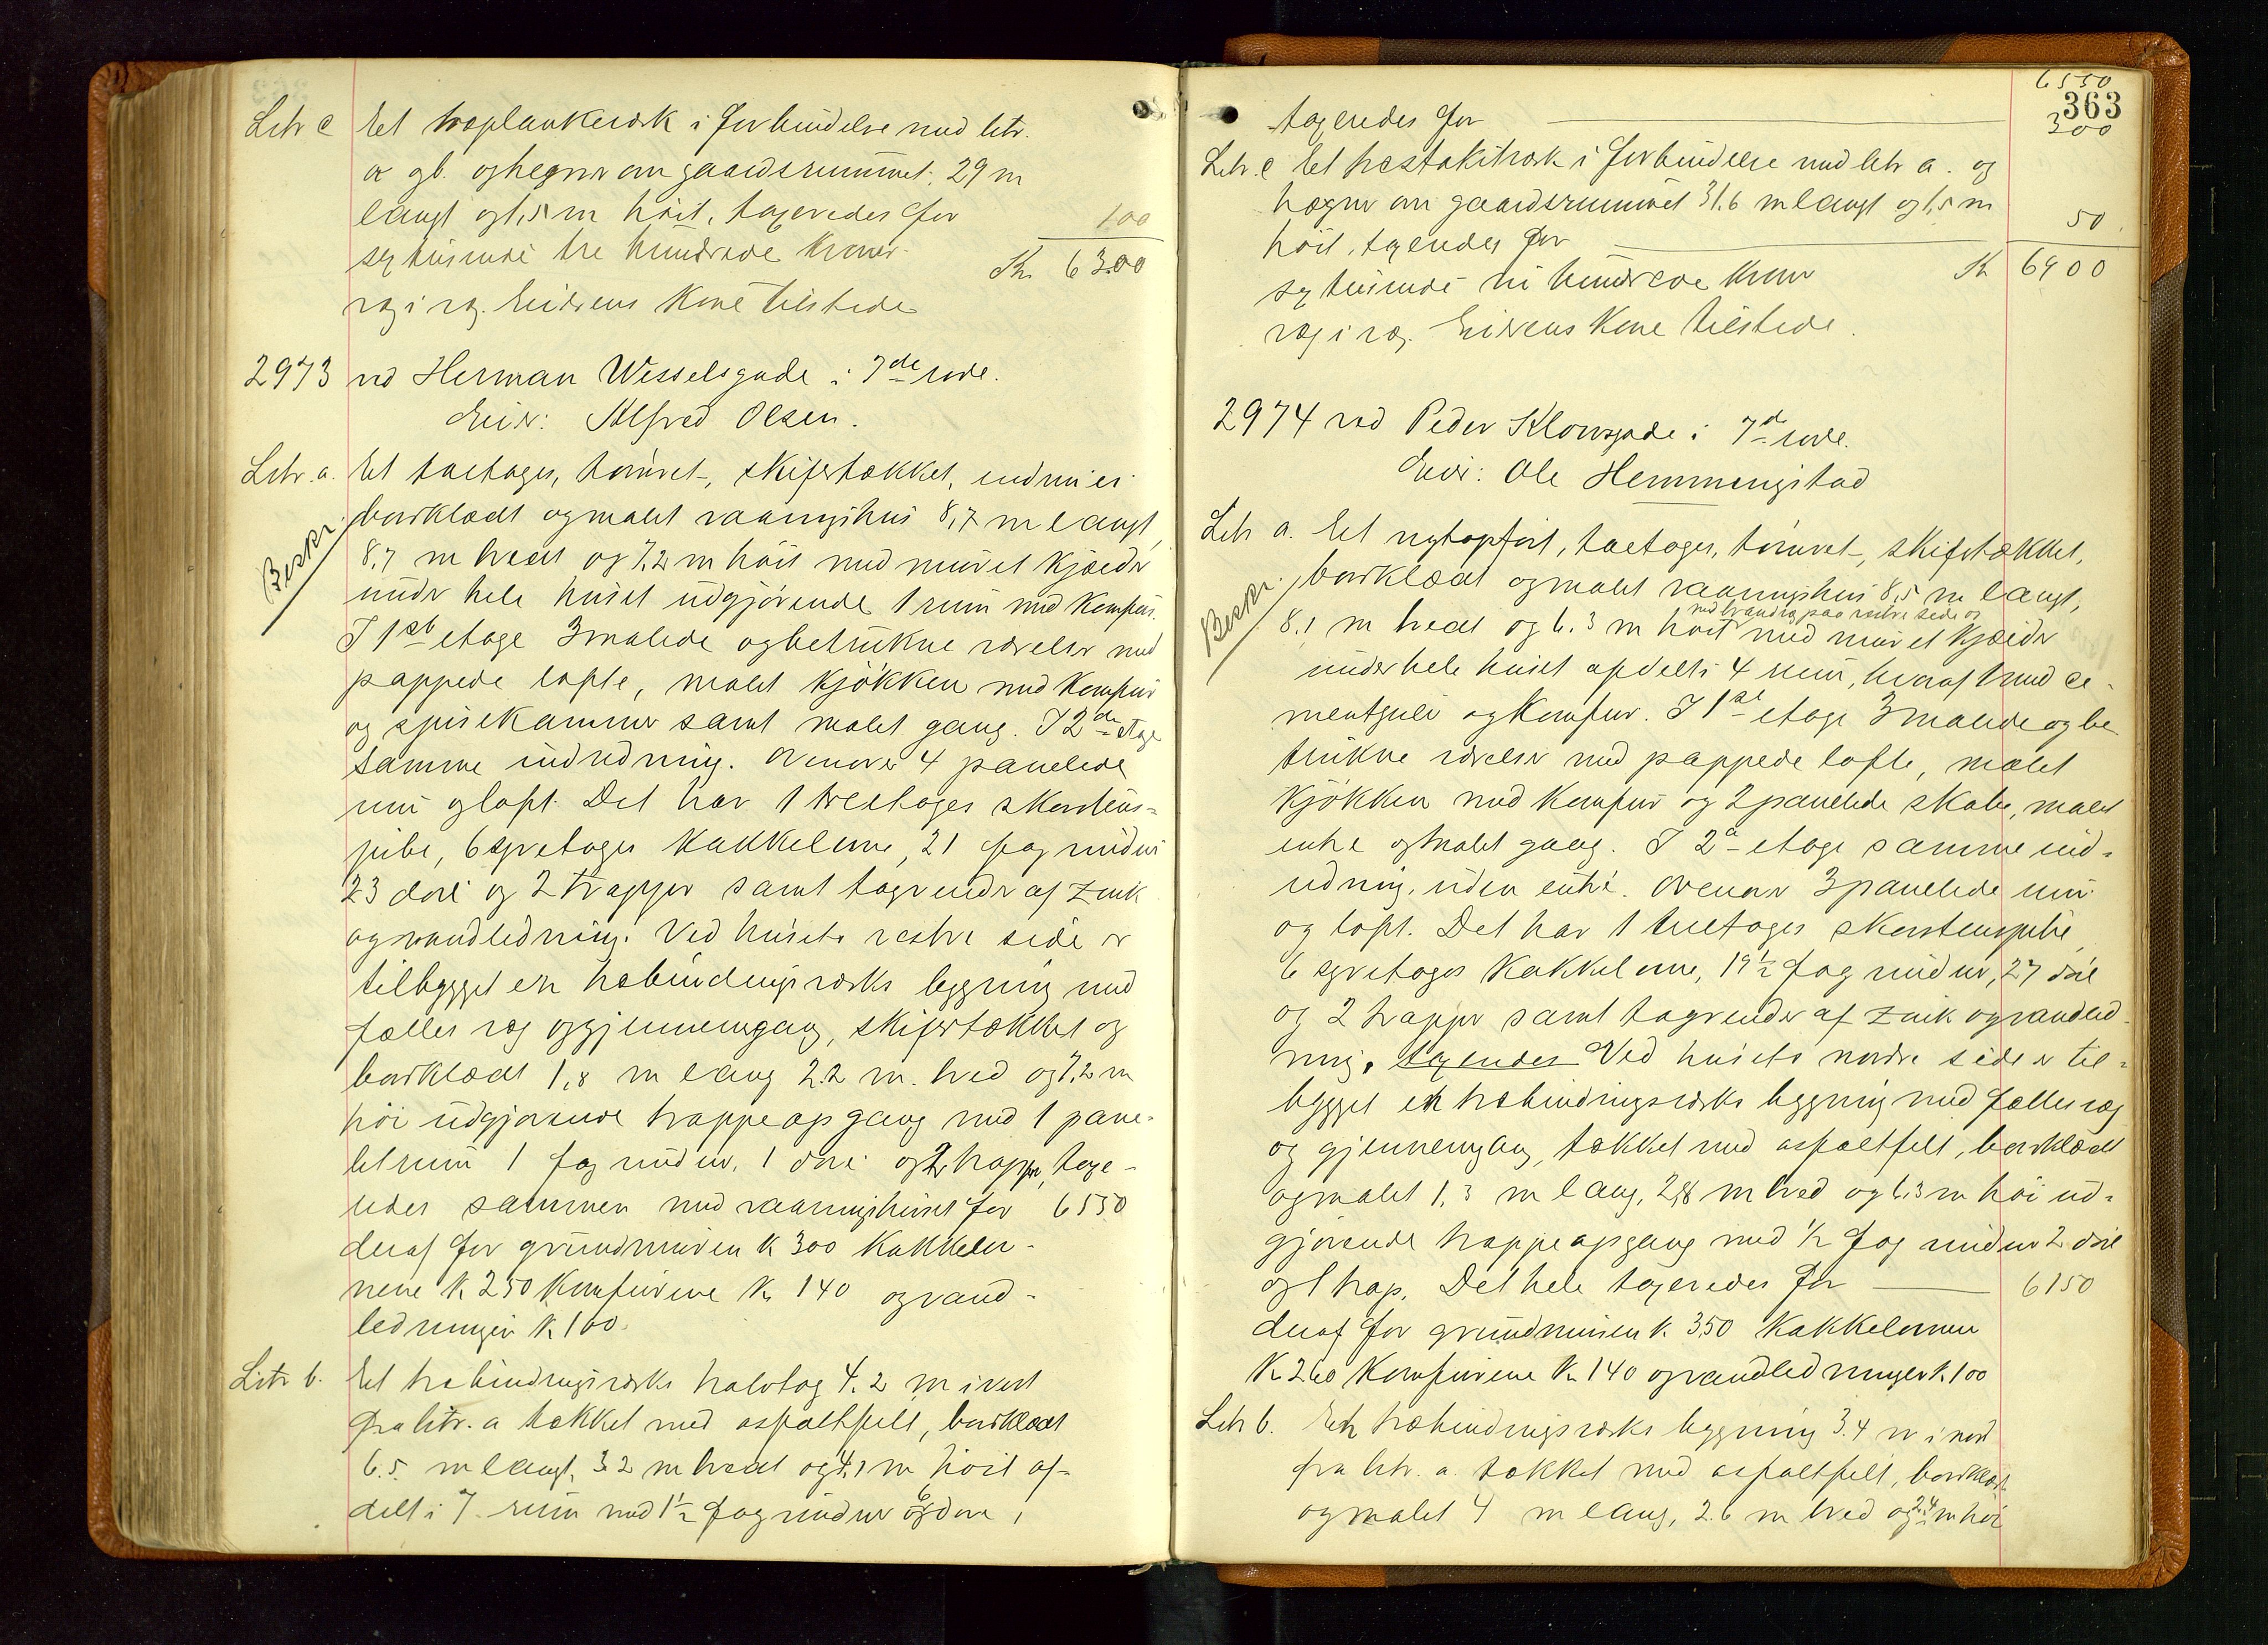 Litr c Et træplankeværk i forbindelse med litr.
a og b. og hegner om gaardsrummet, 29 m
langt og 1,5 m høit, taxeredes for 100
sex tusinde tre hundrede kroner. Kr. 6300
væg i væg. Eierens kone tilstede
2973 ved Herman Wesselsgade i 7de rode.
Eier: Alfred Olsen.
Litr. a. Et toetages, tømret, skifertækket, endnu ei
Beskr. bordklædt og malet vaaningshus 8,7 m langt,
8,7 m bredt og 7,2 m høit med muret kjælder
under hele huset udgjørende 1 rum med komfur.
I 1ste etage 3 malede og betrukne værelser med
pappede lofte, malet kjøkken med komfur
og spisekammer samt malet gang. I 2den etage
samme indredning. Ovenover 4 panelede
rum og loft. Det har 1 treetages skorstens-
pibe, 6 etages kakkelovne, 21 fag vinduer
23 døre og 2 trapper samt tagrender af zink
og vandledning. Ved husets vestre side er
tilbygget en træbindingsværks bygning med
fælles væg og gjennemgang, skifertækket og
bordklædt 1,8 m lang 2.2 m. bred og 7,2 m
høi udgjørende trappeopgang med 1 pane-
let rum 1 fag vinduer, 1 dør og 2 trapper, taxe-
redes sammen med vaaningshuset for 6550
deraf for grundmuren k 300 kakkelov-
nene k 250 komfurene k. 140 og vand-
ledningen k. 100.
Litr b. Et træbindingsværks halvtag 4.2 m i vest
fra litr. a tækket med asfaltfilt, bordklædt
6.5 m langt, 3.2 m bredt og 4,1 m høit af-
delt i 7 rum med 1½ fag vinduer og 6 døre,
6550
363
taxeredes for 300
Litr. c Et træstakitværk i forbindelse med litr a. og
hegner om gaardsrummet 31.6 m langt og 1,5 m
høit, taxeredes for 50
sex tusinde ni hundrede kroner Kr 6900
væg i væg. Eierens kone tilstede.
2974 ved Peder Klowsgade i 7de rode.
Eier: Ole Hemmingstad
Litr a. Et nyt opført, toetages, tømret, skifertækket,
Beskr. bordklædt og malet vaaningshus 8,5 m langt,
med brandvæg paa vestre side og
8.1 m bredt og 6.3 m høit med muret kjælder
under hele huset afdelt i 4 rum, hvoraf 1 med ce-
mentgulv og komfur. I 1ste etage 3 malede og be
trukne værelser med pappede lofte, malet
kjøkken med komfur og 2 panelede skabe, malet
entre og malet gang. I 2den etage samme ind-
redning, uden entré. Ovenover 3 panelede rum
og loft. Det har 1 treetages skorstenspibe,
6 etages kakkelovne, 19½ fag vinduer, 27 døre
og 2 trapper samt tagrender af zink og vandled-
ning. taxeredes Ved husets nordre side er til-
bygget en træbindingsværks bygning med fælles væg
og gjennemgang, tækket med asfaltfilt, bordklædt
og malet 1,3 m lang, 2,8 m bred og 6,3 m høi ud-
gjørende trappeopgang med ½ fag vinduer 2 døre
og 1 trap. Det hele taxeredes for 6150
deraf for grundmuren k. 350 kakkelovnene
k 260 komfurene k. 140 og vandledningen k. 100
Litr b. En træbindingsværks bygning 3.4 m i nord
fra litr. a. tækket med asfaltfilt, bordklædt
og malet 4 m lang, 2.6 m bred og 2.4 m høi